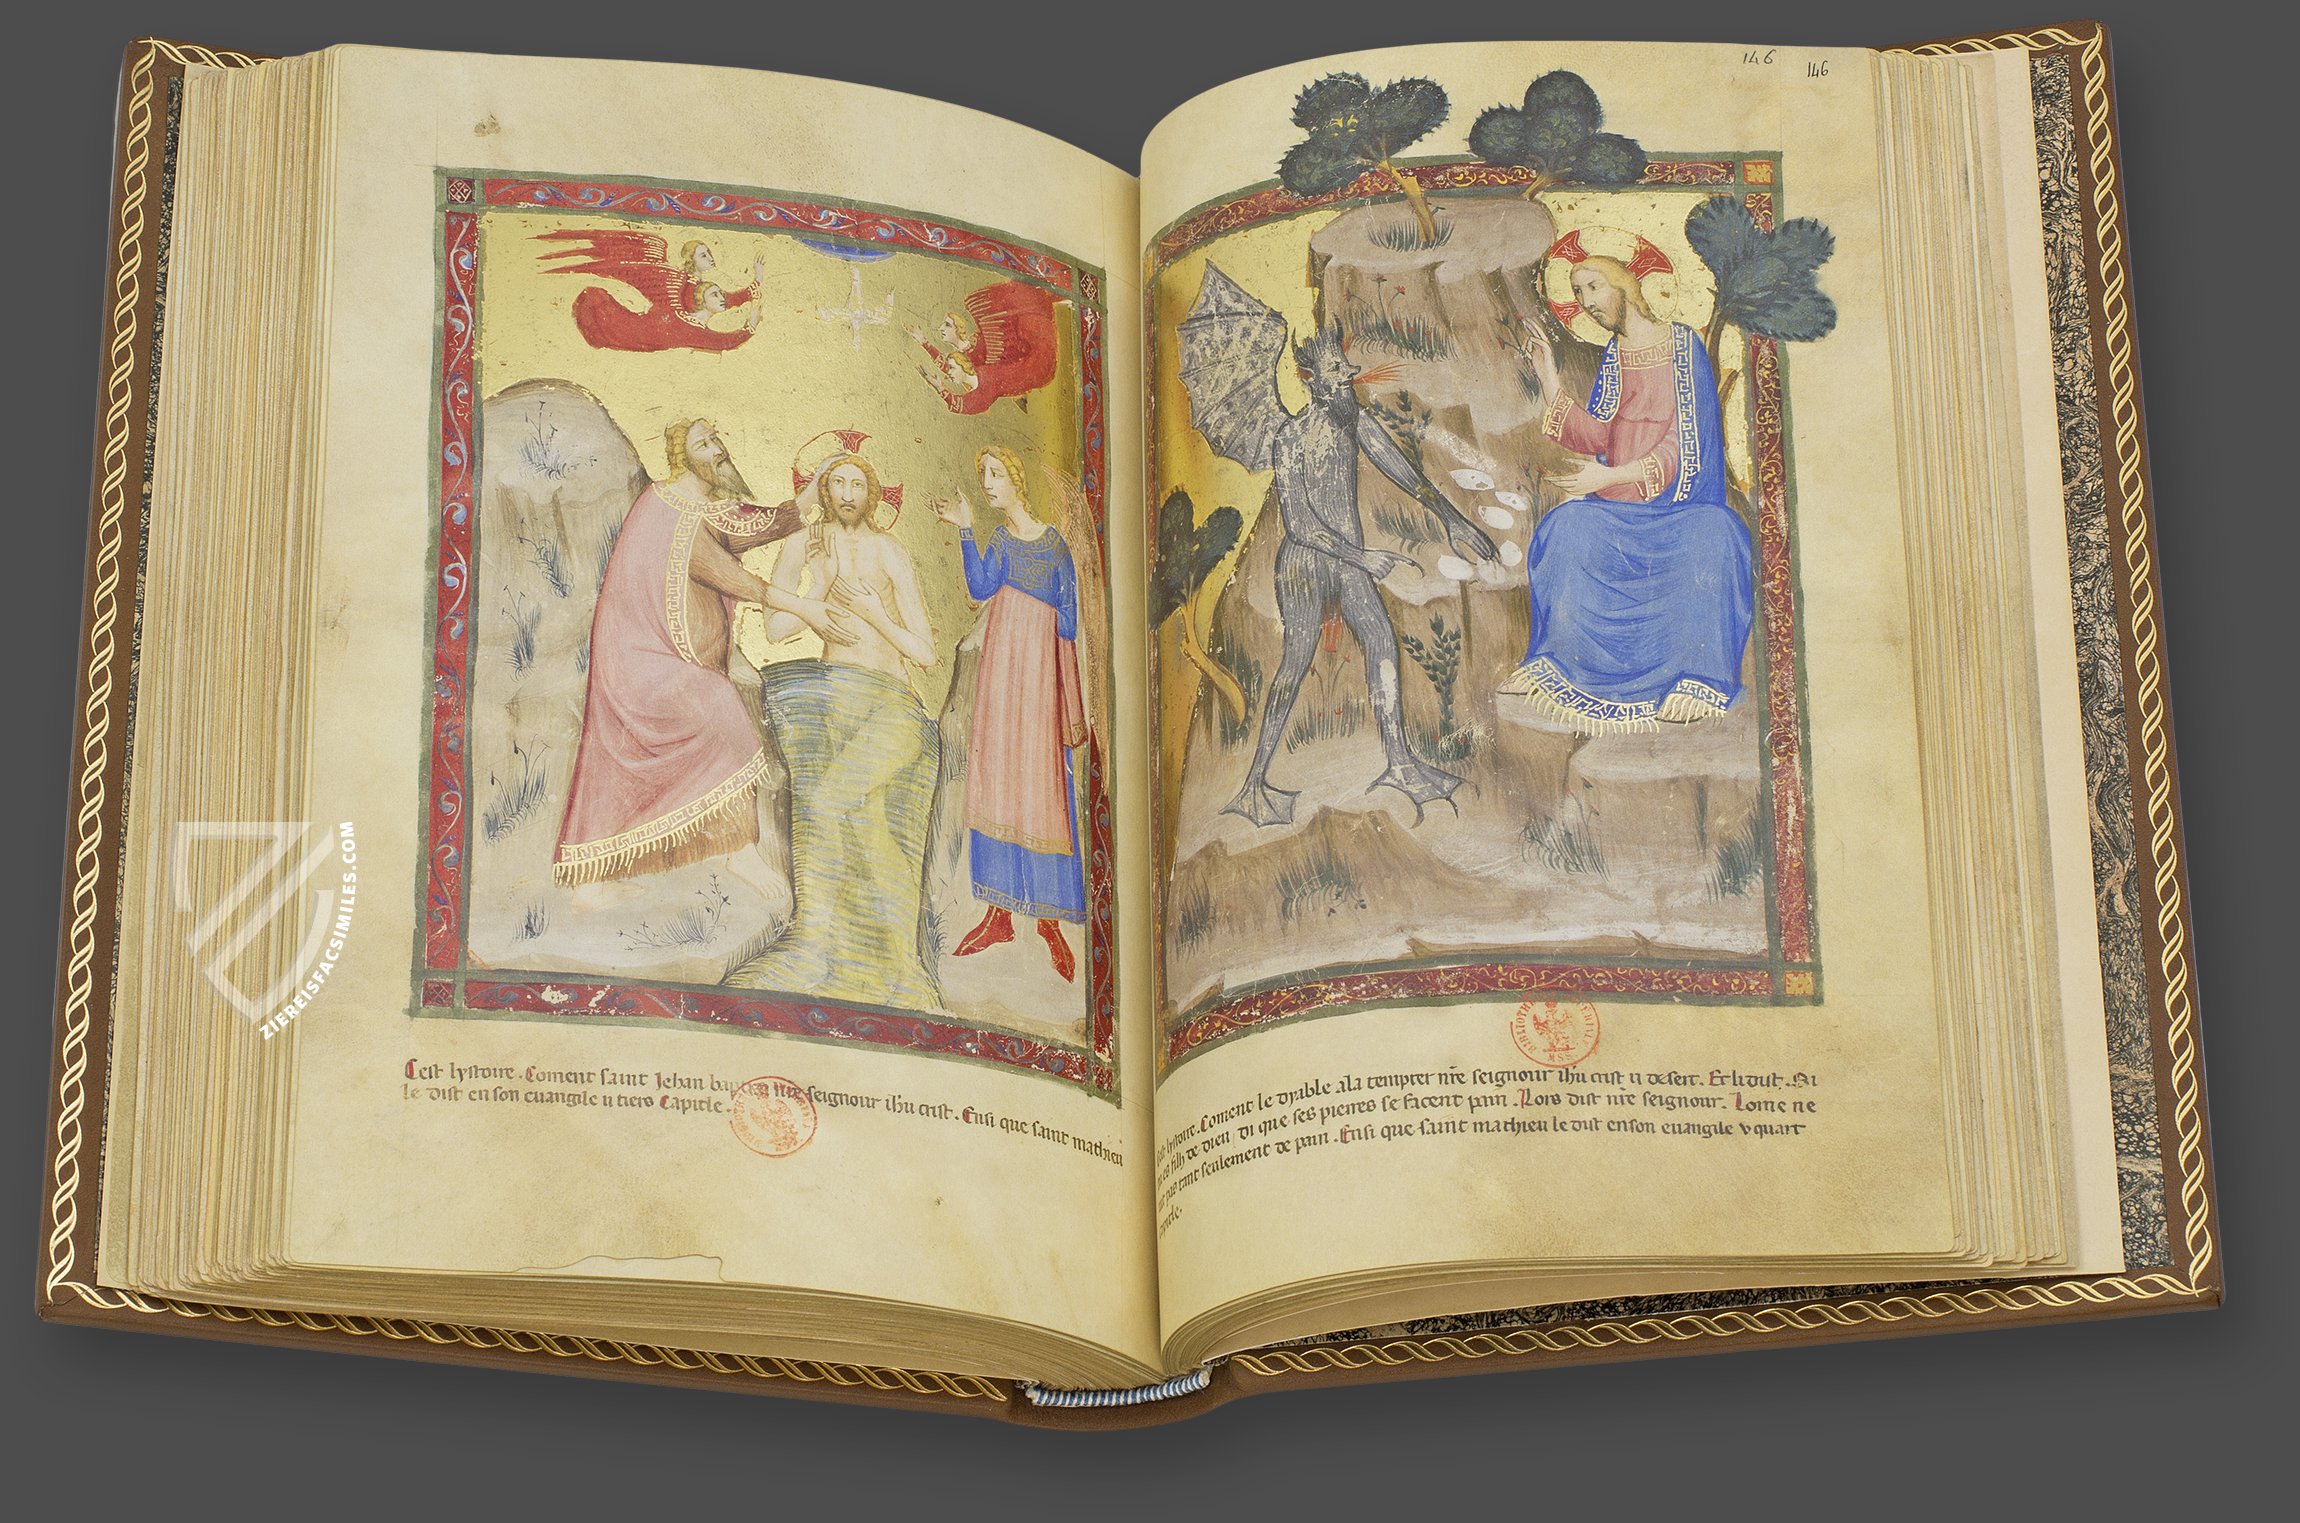 146
146
Cest lystoire. Coment saint Jehan bap nr̄e seignour ih'u crist. Ensi que saint mathieu
le dist en son euangile u tiers Capitle.
lystoire. Coment le dyable ala tempter nr̄e seignour ih'u crist u desert. Et li dist. Si
es filz de dieu, di que ses pierres se facent pain. Lors dist nr̄e seignour. Lome ne
pas tant seulement de pain. Ensi que saint mathieu le dist en son euangile v quart
ZIEREISFACSIMILES.COM